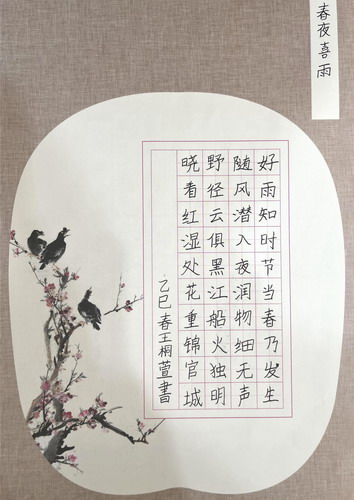 春夜喜雨
好雨知时节当春乃发生
随风潜入夜润物细无声
野径云俱黑江船火独明
晓看红湿处花重锦官城
乙巳春王桐萱書